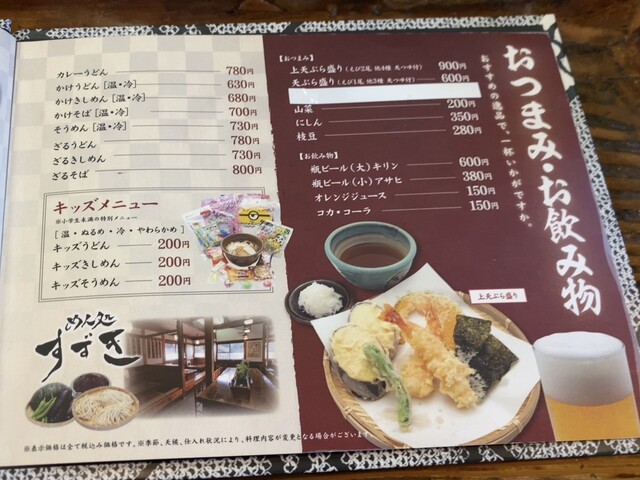 カレーうどん 780円
かけうどん［温・冷］ 630円
かけきしめん［温・冷］ 680円
かけそば［温・冷］ 700円
そうめん［温・冷］ 730円
ざるうどん 780円
ざるきしめん 730円
ざるそば 800円
キッズメニュー
※小学生未満の特別メニュー
［温・ぬるめ・冷・やわらかめ］
キッズうどん 200円
キッズきしめん 200円
キッズそうめん 200円
めん処
すずき
【おつまみ】
上天ぷら盛り（えび2尾 他4種 天つゆ付） 900円
天ぷら盛り（えび1尾 他3種 天つゆ付） 600円
山菜 200円
にしん 350円
枝豆 280円
【お飲み物】
瓶ビール（大）キリン 600円
瓶ビール（小）アサヒ 380円
オレンジジュース 150円
コカ・コーラ 150円
おつまみ・お飲み物
おすすめの逸品で、一杯いかがですか。
上天ぷら盛り
※表示価格は全て税込み価格です。※季節、天候、仕入れ状況により、料理内容が変更となる場合がございます。